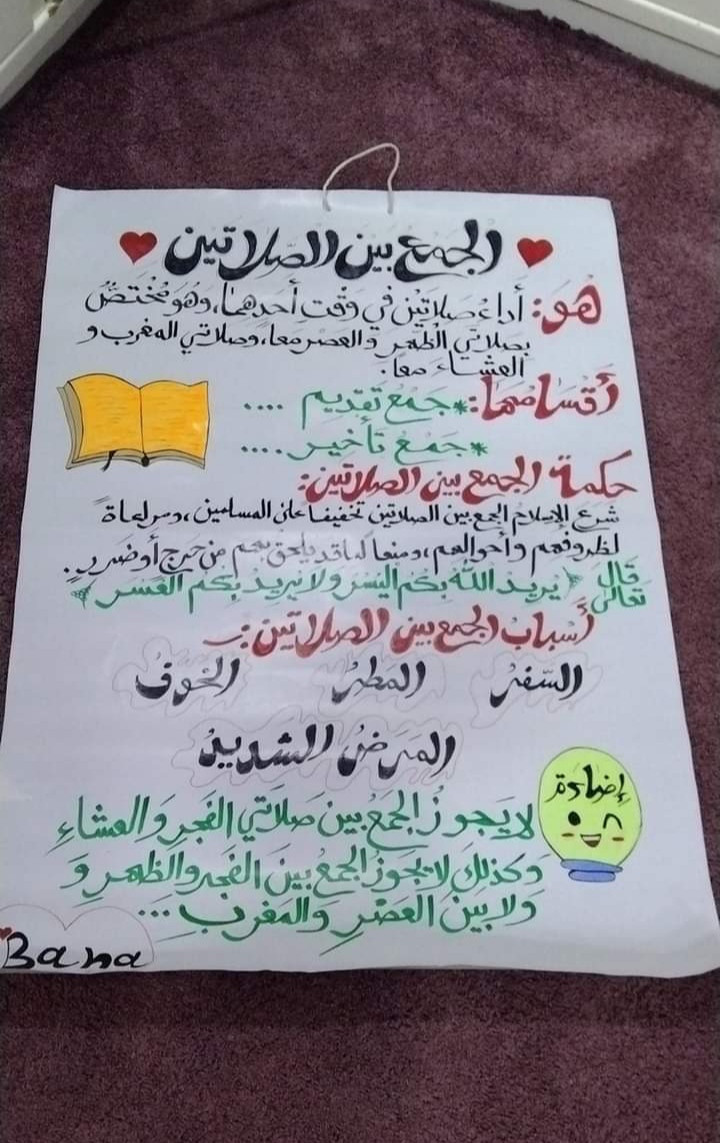 الجمع بين الصلاتين
هو: أداء صلاتين في وقت أحدهما، وهو مختص
بصلاتي الظهر والعصر معا، وصلاتي المغرب و
العشاء معا.
أقسامهما: * جمع تقديم ....
* جمع تأخير ....
حكمة الجمع بين الصلاتين:
شرع الإسلام الجمع بين الصلاتين تخفيفا على المسلمين، ومراعاة
لظروفهم وأحوالهم، ومنعا لما قد يلحق بهم من حرج أو ضرر.
قال تعالى ﴿يريد الله بكم اليسر ولا يريد بكم العسر﴾
أسباب الجمع بين الصلاتين:
السفر المطر الخوف
المرض الشديد
إضاءة
لا يجوز الجمع بين صلاتي الفجر والعشاء
وكذلك لا يجوز الجمع بين الفجر والظهر و
ولا بين العصر والمغرب ...
Bana